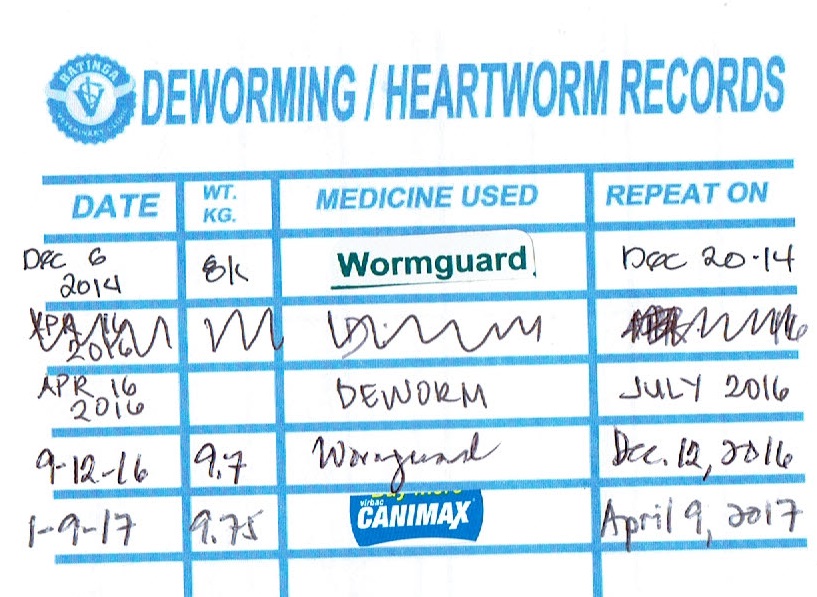 BATINGA
VETERINARY CLINIC
DEWORMING / HEARTWORM RECORDS
DATE WT. KG. MEDICINE USED REPEAT ON
DEC 6 2014 8K Wormguard DEC 20-14
APR 16 2016
APR 16 2016 DEWORM JULY 2016
9-12-16 9.7 Wormguard Dec. 12, 2016
1-9-17 9.75 virbac CANIMAX April 9, 2017